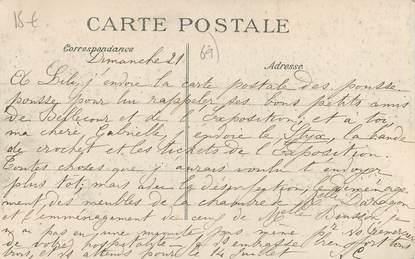 18 €
CARTE POSTALE
(69)
Correspondance
Adresse
Dimanche 21
A Lili j'envoie la carte postale des pousse
pousse pour lui rappeler ses bons petits amis
de Bellecour et de l'Exposition; et à toi,
ma chère Gabrielle j'envoie le la bande
de crochet et les tickets de l'Exposition.
Toutes choses que j'aurais voulu t'envoyer
plus tôt; mais avec la désinfection, le déménage
ment, des meubles de la chambre de
et l'emménagement de ceux de Melle
n'a pas eu une minute, pas même pr vs remercier
de votre hospitalité
et attends pour le 14 Juillet